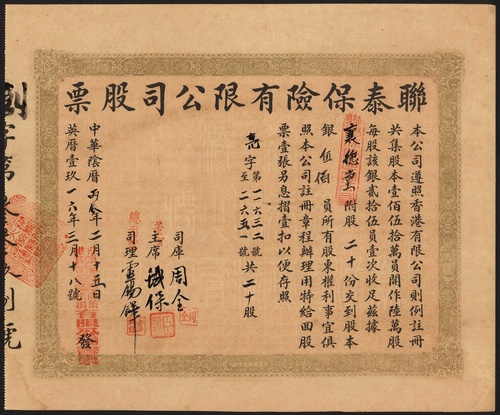 聯泰保險有限公司股票
本公司遵照香港有限公司則例註冊
共集股本壹佰伍十萬員開作陸萬股
每股該銀貳拾伍員壹次收足茲據
襄德堂 附股 二十份交到股本
銀 伍佰 員所有股東權利事宜俱
照本公司註冊章程辦理用特給囬股
票壹張另息摺壹扣以便存照
亮字第二六三二號
至二六五一號共二十股
司庫 周
主席 保
司理
中華陰曆丙辰年二月十五日
英曆壹玖一六年三月十八號 發